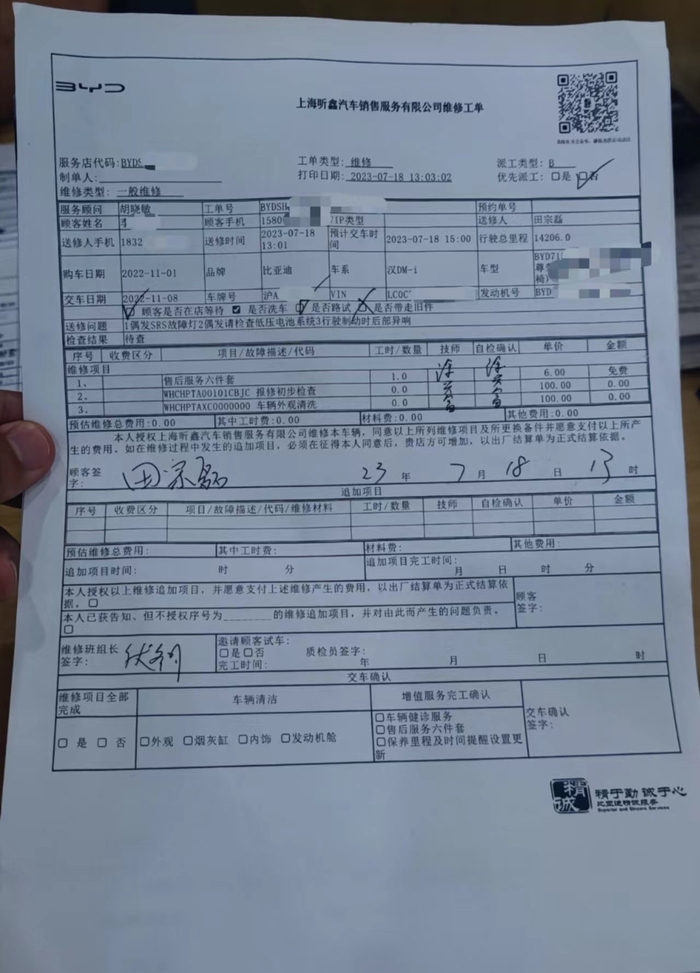 BYD
上海昕鑫汽车销售服务有限公司维修工单
服务店代码:BYDS 工单类型:维修 派工类型:B
制单人: 打印日期:2023-07-18 13:03:02 优先派工:□是 □否
维修类型:一般维修
服务顾问 胡晓敏 工单号 BYDSH 预约单号
顾客姓名 顾客手机 1580 VIP类型 送修人 田宗磊
送修人手机 1832 送修时间 2023-07-18 13:01 预计交车时间 2023-07-18 15:00 行驶总里程 14206.0
购车日期 2022-11-01 品牌 比亚迪 车系 汉DM-i 车型 BYD71 尊
交车日期 2022-11-08 车牌号 沪A VIN LC0C 发动机号 BYD
顾客是否在店等待 是否洗车 是否路试 是否带走旧件
送修问题 1偶发SRS故障灯2偶发请检查低压电池系统3行驶制动时后部异响
检查结果 待查
序号 收费区分 项目/故障描述/代码 工时/数量 技师 自检确认 单价 金额
维修项目
1、 售后服务六件套 1.0 6.00 免费
2、 WHCHPTA00101CBJC 报修初步检查 0.0 100.00 0.00
3、 WHCHPTAXC0000000 车辆外观清洗 0.0 100.00 0.00
预估维修总费用:0.00 其中工时费:0.00 材料费:0.00 其他费用:0.00
本人授权上海昕鑫汽车销售服务有限公司维修本车辆，同意以上所列维修项目及所更换备件并愿意支付以上所产
生的费用。如在维修过程中发生的追加项目，必须在征得本人同意后，贵店方可增加，以出厂结算单为正式结算依据。
顾客签字: 田宗磊 23 年 7 月 18 日 13 时
追加项目
序号 收费区分 项目/故障描述/代码/维修材料 工时/数量 技师 自检确认 单价 金额
预估维修总费用: 其中工时费: 材料费: 其他费用:
追加项目时间: 时 分 追加项目完工时间: 月 日 时 分
本人授权以上维修追加项目，并愿意支付上述维修产生的费用，以出厂结算单为正式结算依
据。□
顾客签字:
本人已获告知、但不授权序号为________的维修追加项目，并对由此而产生的问题负责。
□
维修班组长签字: 邀请顾客试车: □是□否 质检员签字:
完工时间: 年 月 日 时
交车确认
维修项目全部完成 车辆清洁 增值服务完工确认 交车确认签字:
□ 是 □ 否 □外观 □烟灰缸 □内饰 □发动机舱
□车辆健诊服务
□售后服务六件套
□保养里程及时间提醒设置更新
精诚
精于勤 诚于心
比亚迪精诚服务
Superior and Sincere Services